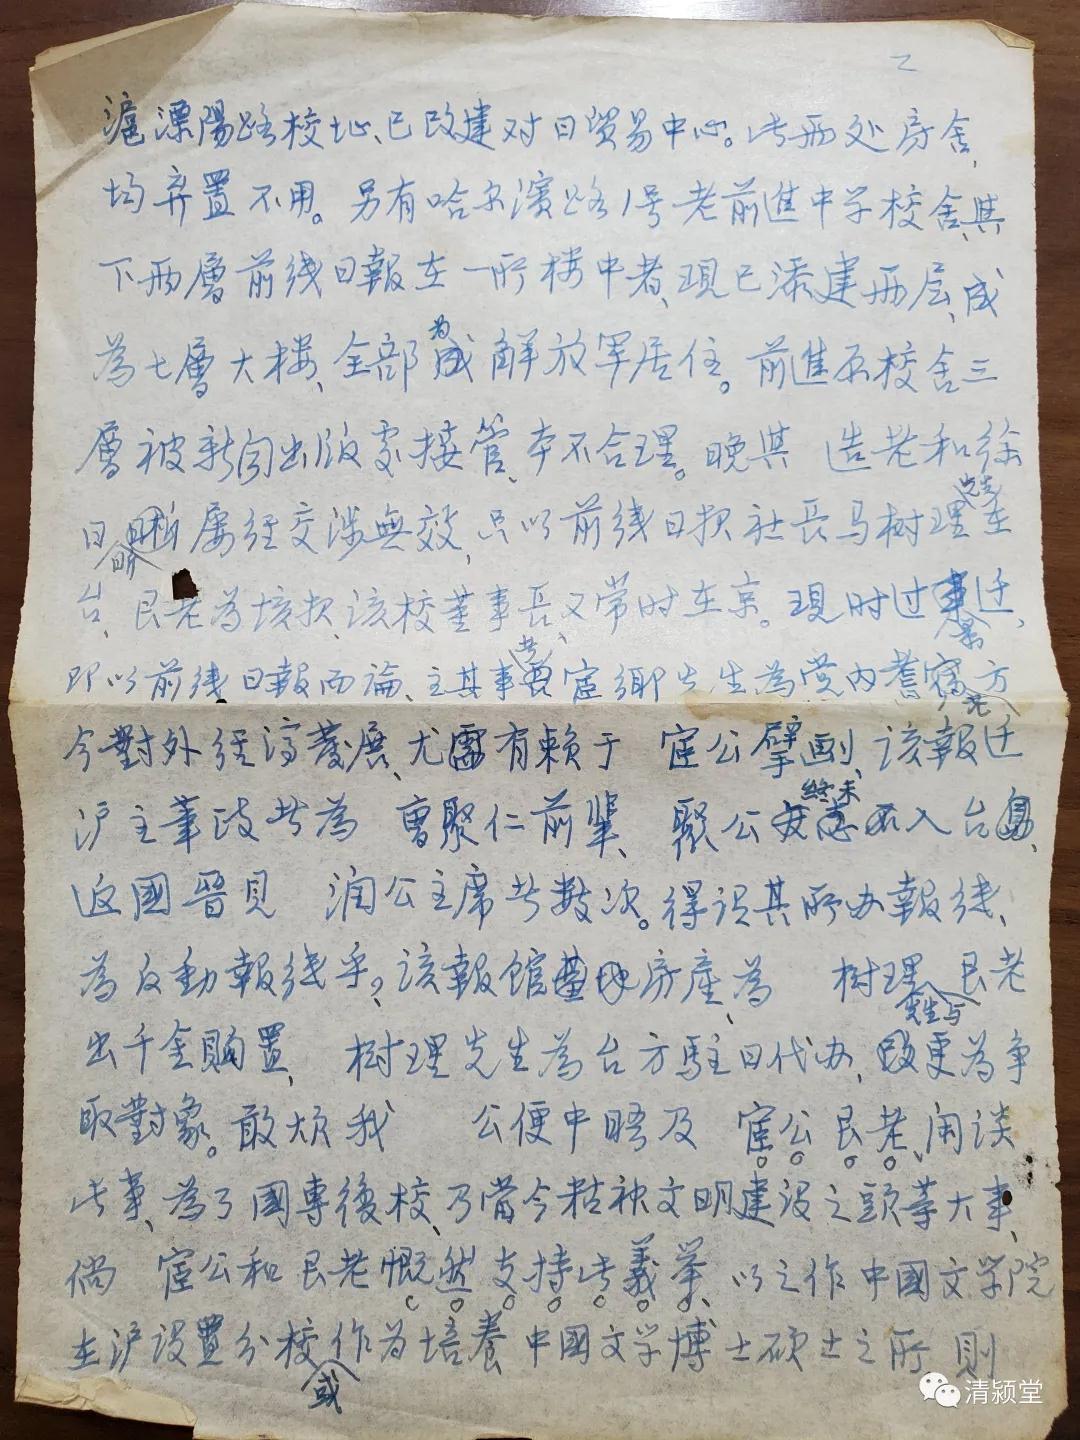 乙
滬漂陽路校址、已改建对日貿易中心。此两处房舍、
均弃置不用。另有哈尔濱路1号老前進中学校舍、其
下两層前线日報在一所楼中者、現已添建两层、成
為七層大楼、全部為解放军居住。前進原校舍三
層被新闻出版家接管、本不合理。晚與 造老和徐
日 屡经交涉無效、只以前线日报社長马树理先生在
台、艮老為该报、该校董事長、又常时在京。現时过景迁、
即以前线日報而論、主其事者宦鄉先生為党内耆
今對外经濟發展、尤需有赖于 宦公擘画、该報迁
沪主筆政者為 曹聚仁前輩、聚公終未入台島、
返國晉見 润公主席者数次。得谓其所办報线、
為反動報线乎？该報館房產、為 树理先生与艮老
出千金購置、 树理先生為台方駐日代办、更為争
取對象。敢烦我 公便中晤及 宦公艮老、闲谈
此事、為了國專復校、乃當今精神文明建设之頭等大事、
倘 宦公和艮老慨然支持此義举、以之作中國文学院
在沪设置分校或作為培養中國文学博士硕士之所 則
清颍堂